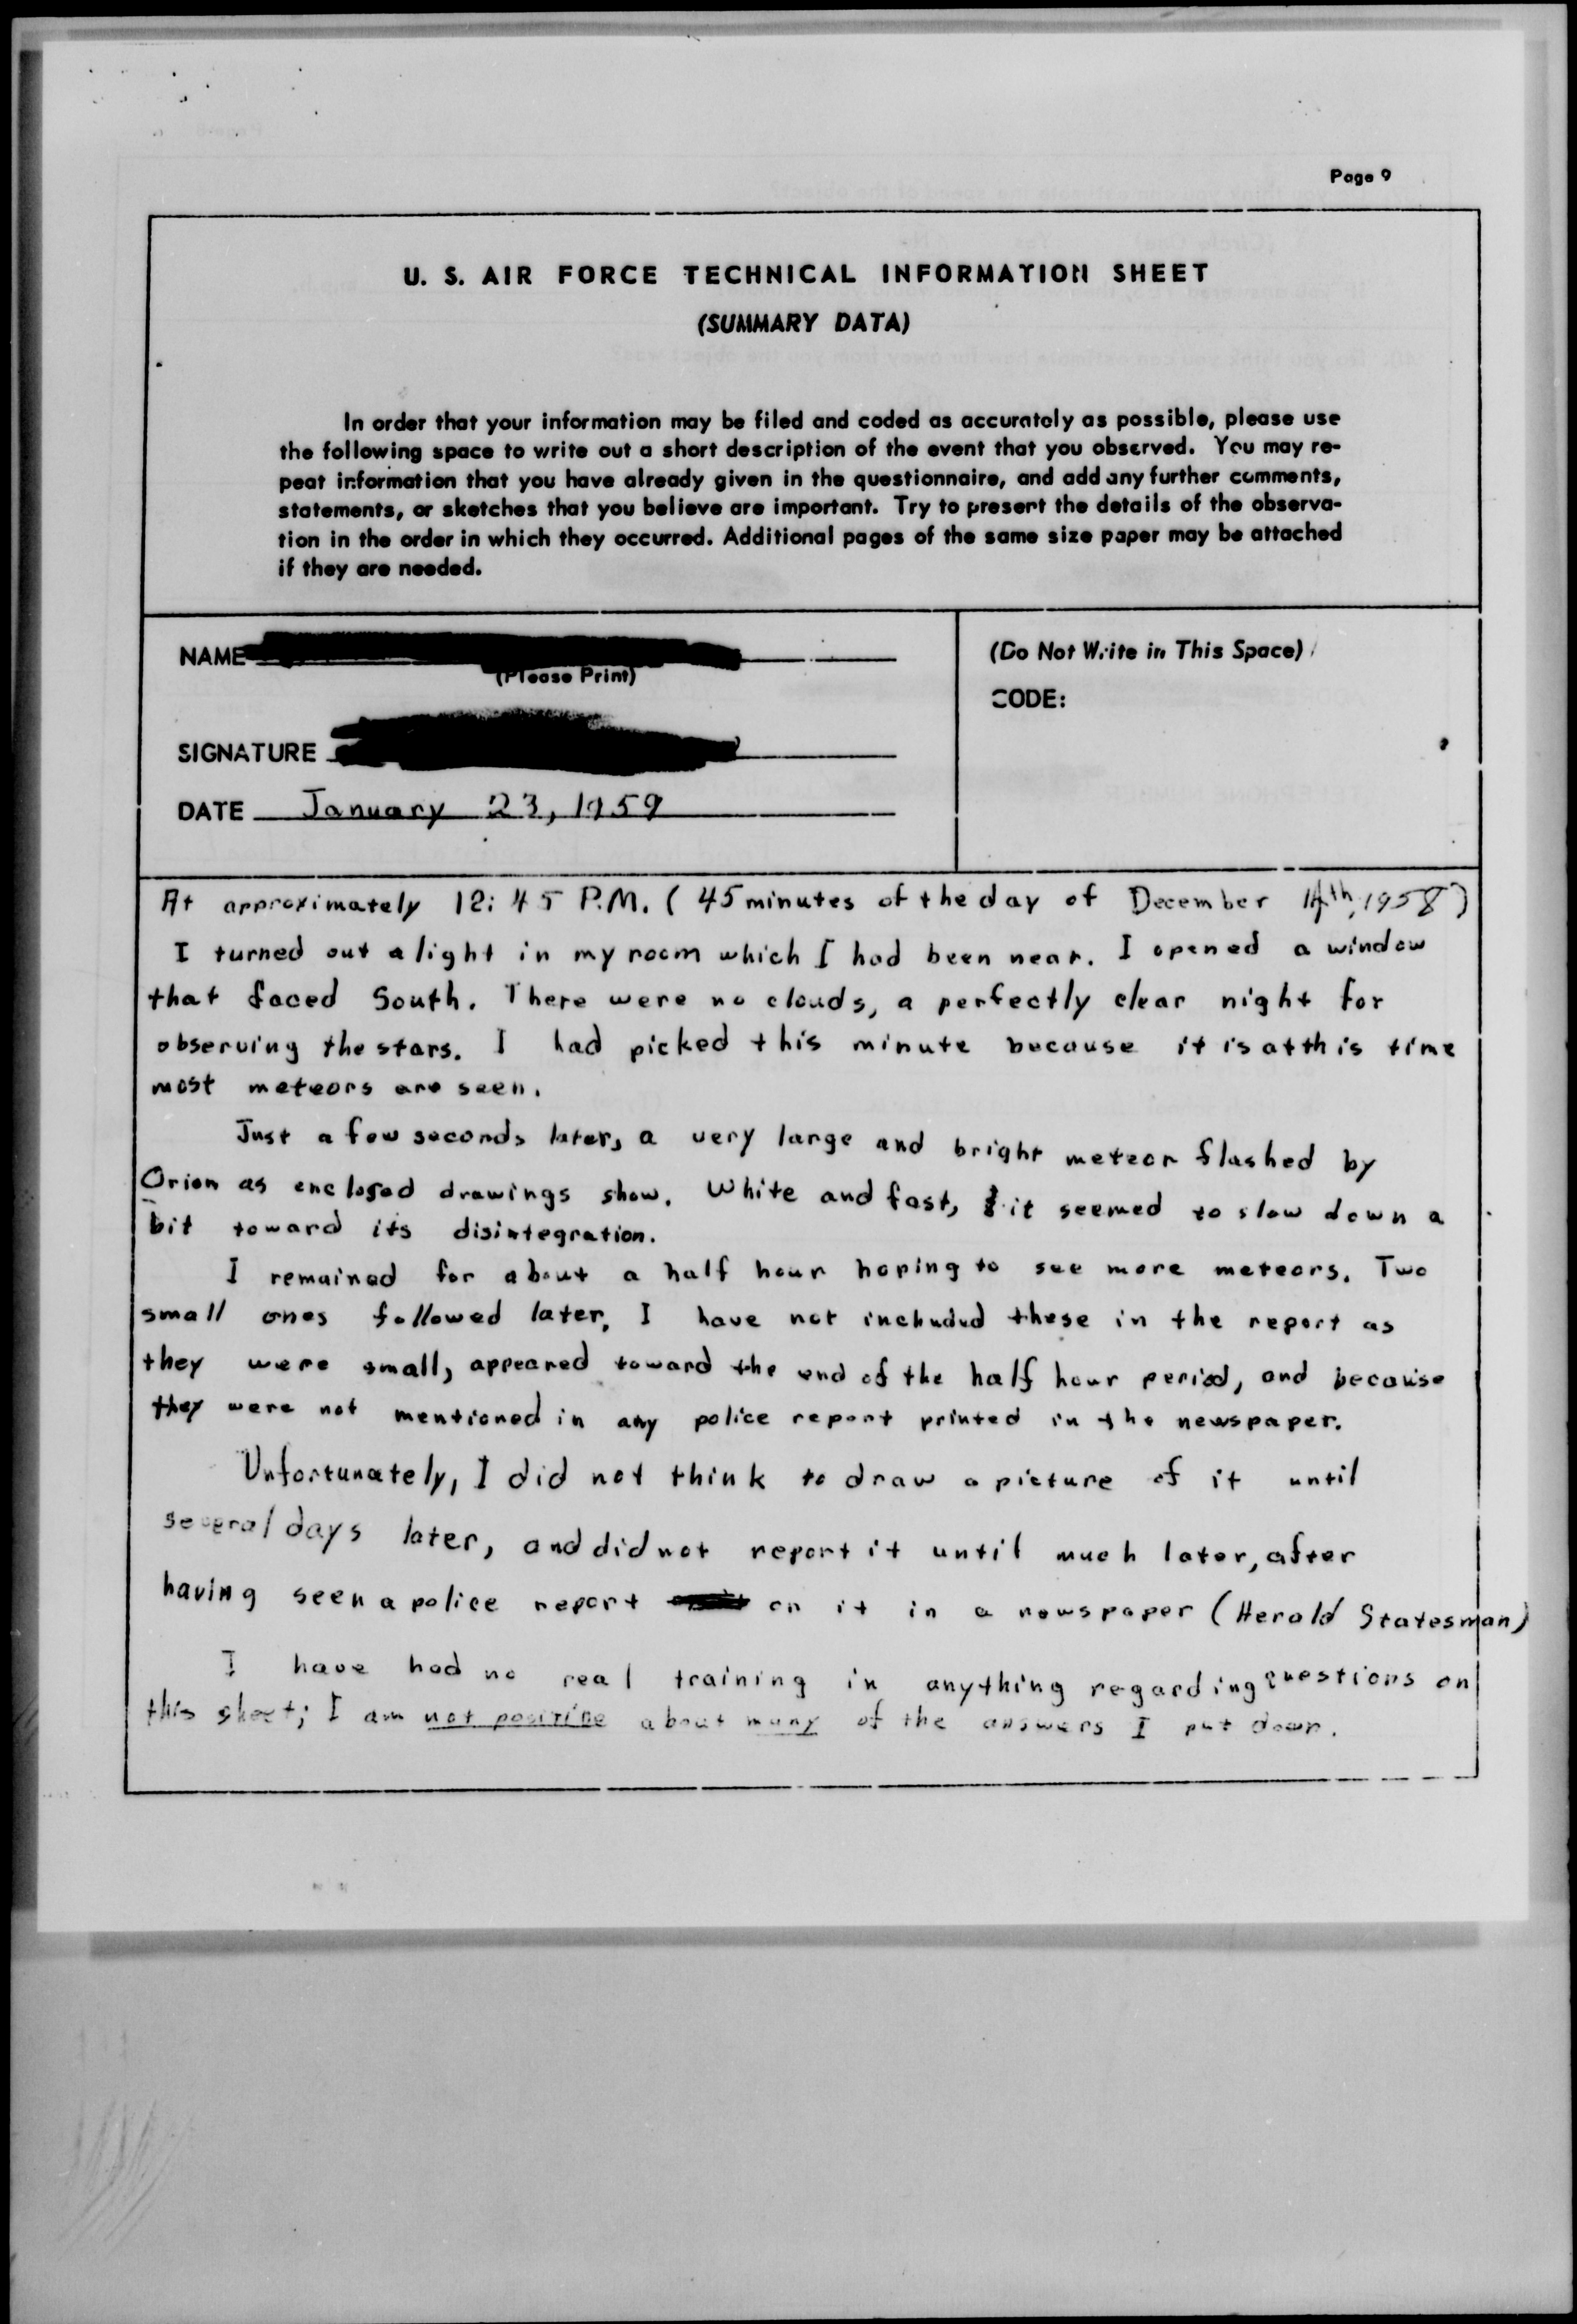 Page 9
U. S. AIR FORCE TECHNICAL INFORMATION SHEET
(SUMMARY DATA)
In order that your information may be filed and coded as accurately as possible, please use
the following space to write out a short description of the event that you observed. You may re-
peat information that you have already given in the questionnaire, and add any further comments,
statements, or sketches that you believe are important. Try to present the details of the observa-
tion in the order in which they occurred. Additional pages of the same size paper may be attached
if they are needed.
NAME
(Please Print)
(Do Not Write in This Space)
CODE:
SIGNATURE
DATE January 23, 1959
At approximately 12:45 P.M. (45 minutes of the day of December 14th, 1958)
I turned out a light in my room which I had been near. I opened a window
that faced South. There were no clouds, a perfectly clear night for
observing the stars. I had picked this minute because it is at this time
most meteors are seen.
Just a few seconds later, a very large and bright meteor flashed by
Orion as enclosed drawings show. White and fast, it seemed to slow down a
bit toward its disintegration.
I remained for about a half hour hoping to see more meteors. Two
small ones followed later. I have not included these in the report as
they were small, appeared toward the end of the half hour period, and because
they were not mentioned in any police report printed in the newspaper.
Unfortunately, I did not think to draw a picture of it until
several days later, and did not report it until much later, after
having seen a police report on it in a newspaper (Herald Statesman)
I have had no real training in anything regarding questions on
this sheet; I am not positive about many of the answers I put down.